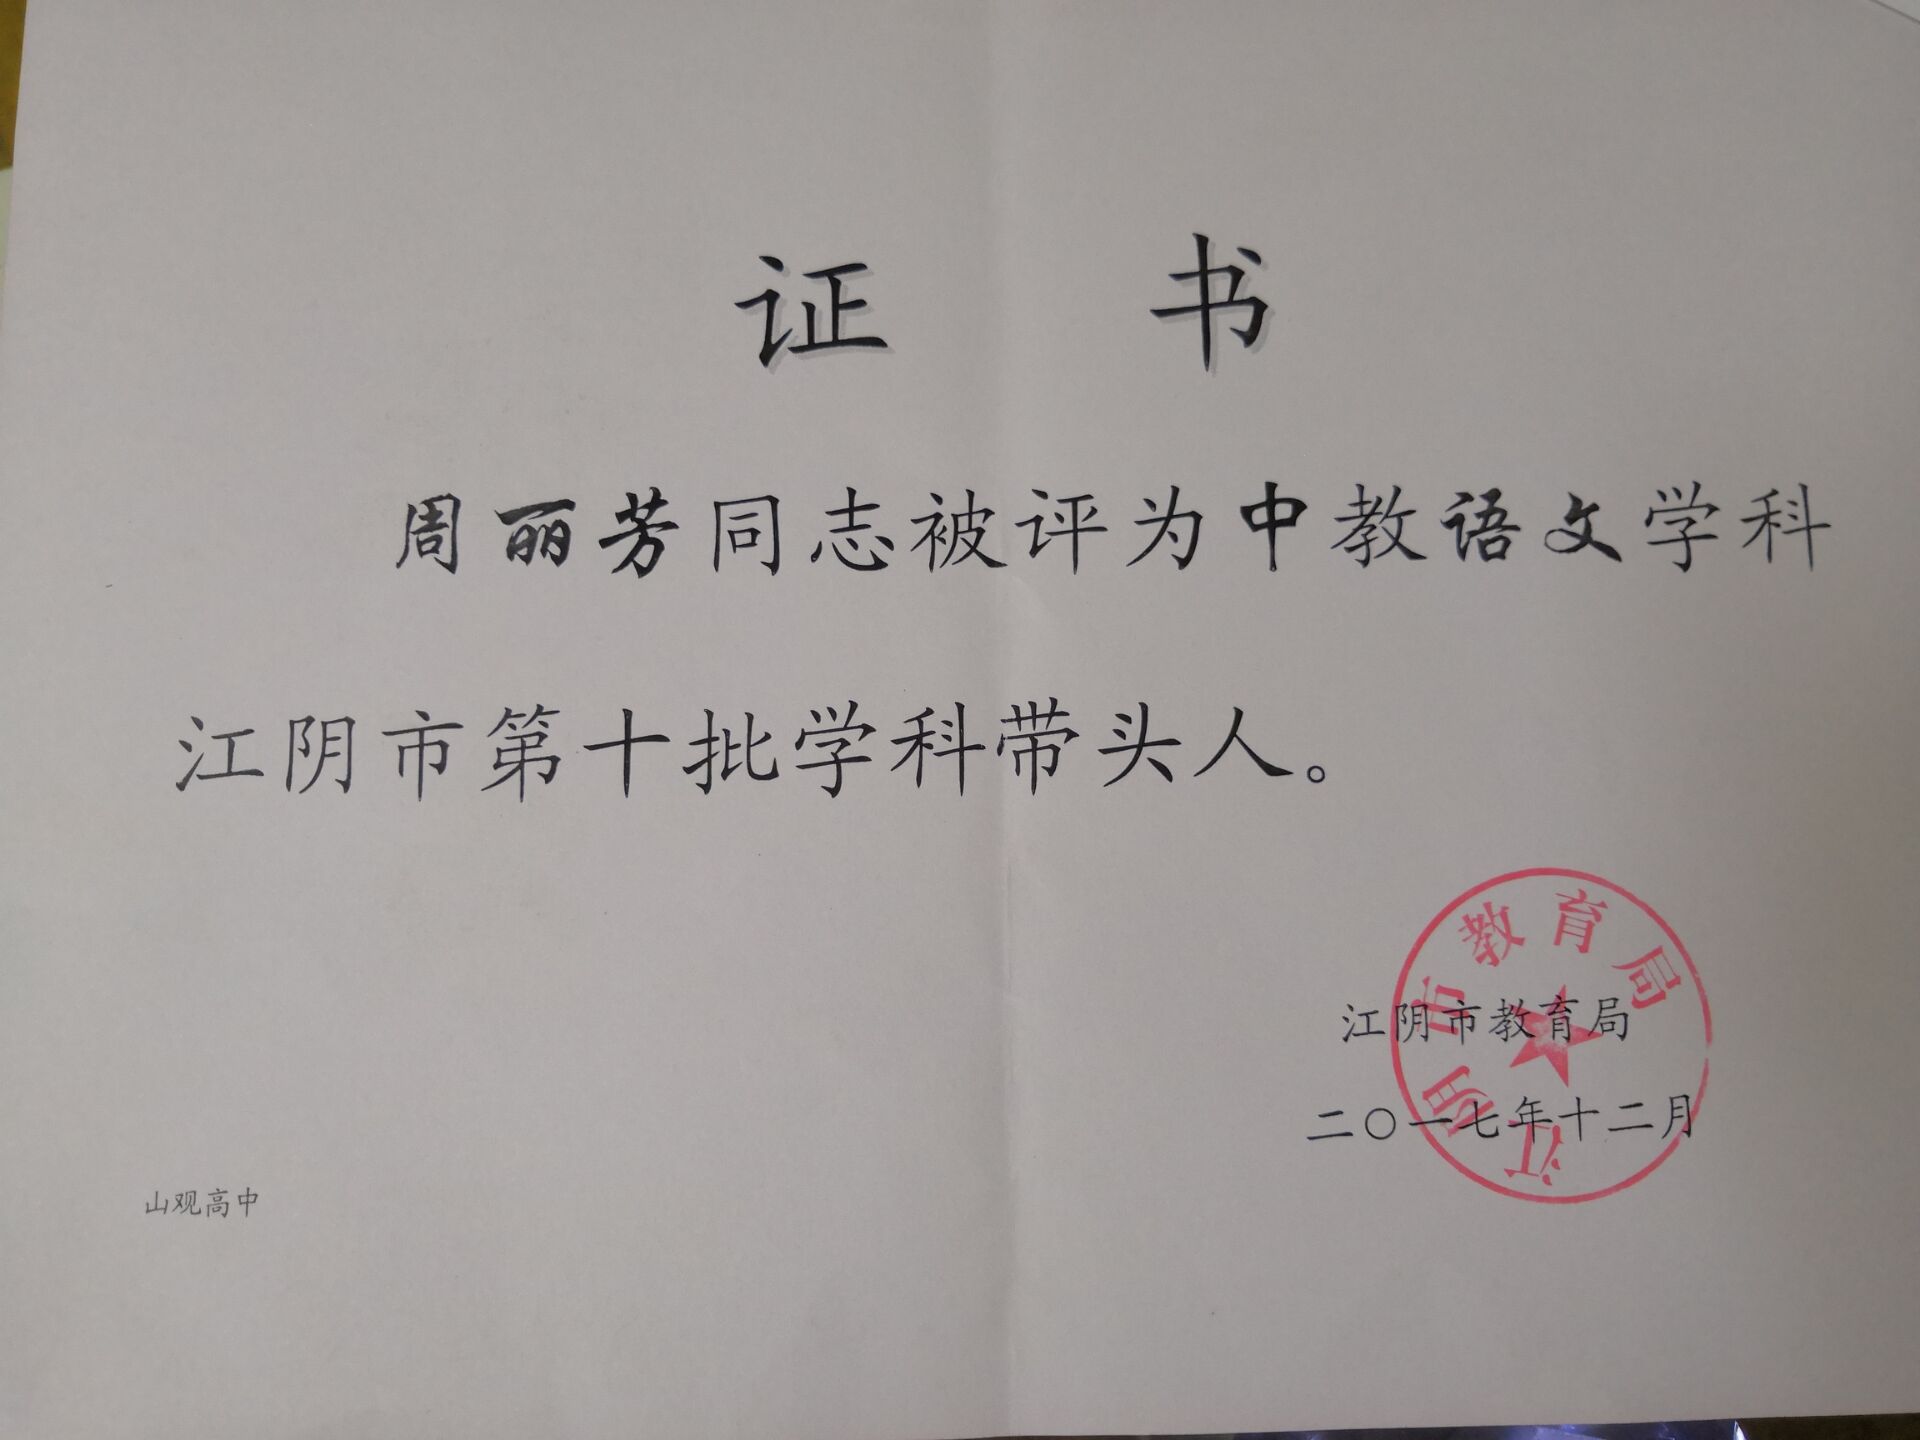 证 书
周丽芳同志被评为中教语文学科
江阴市第十批学科带头人。
江阴市教育局
江阴市教育局
二〇一七年十二月
山观高中